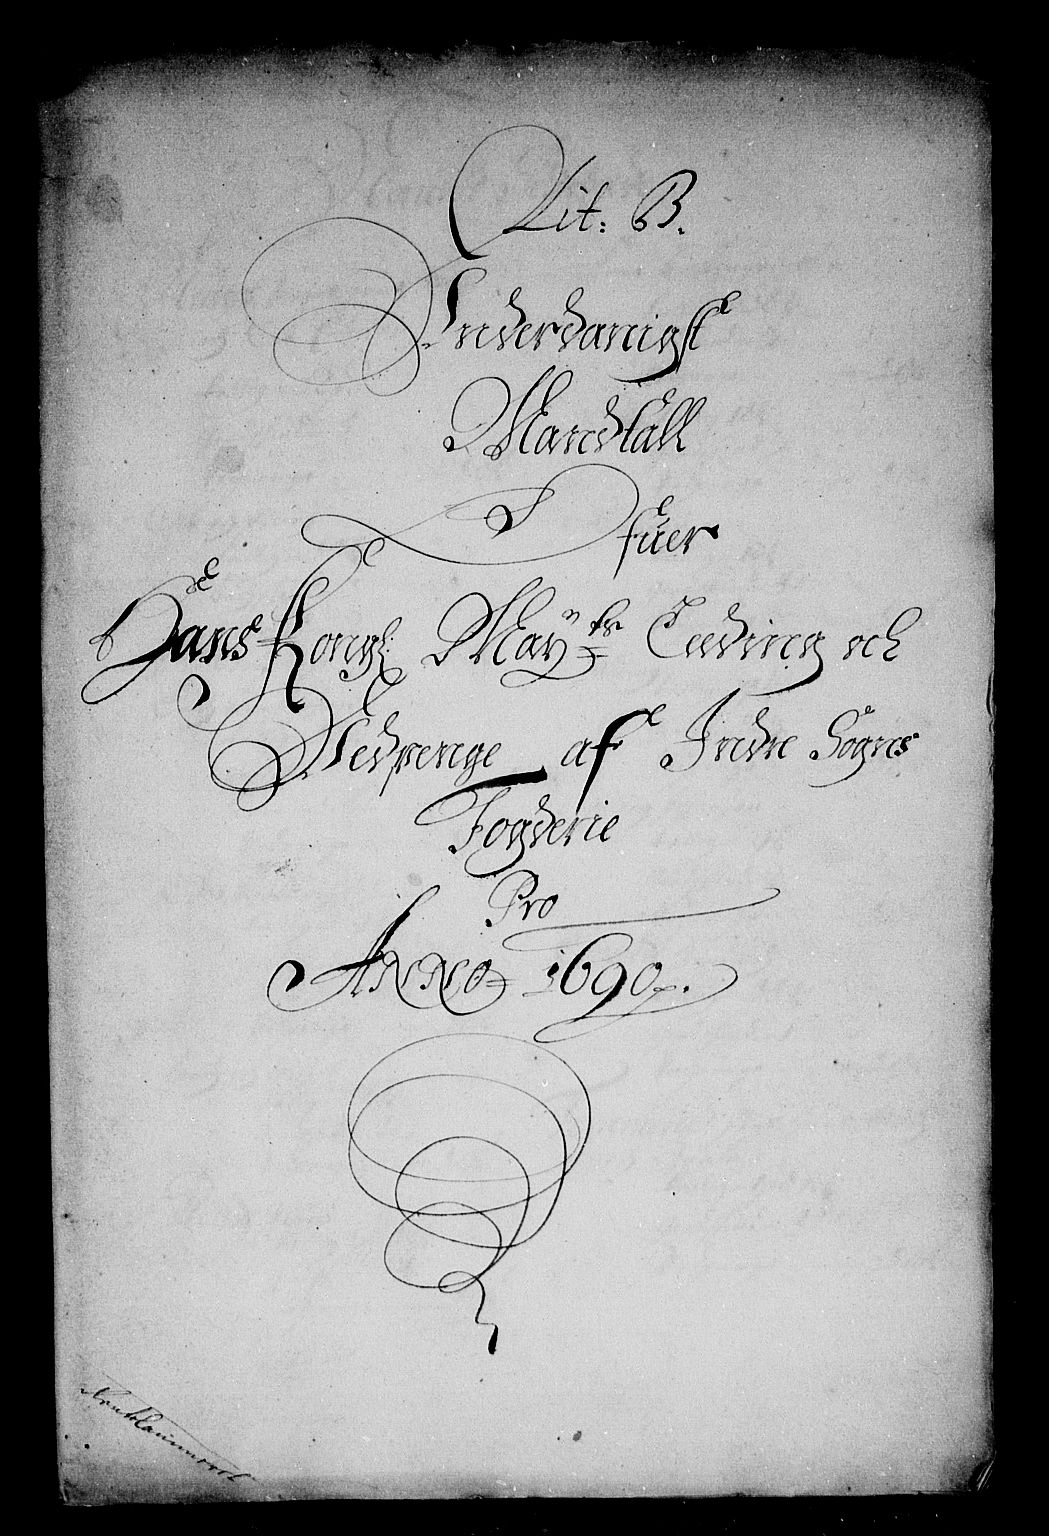 Lit: B.
Underdanigst
Mandtall
Ofuer
Hans Kongl: May:ts Leeding och
Vedpenge af Indre Sogns
Fogderie
Pro
Anno 1690.